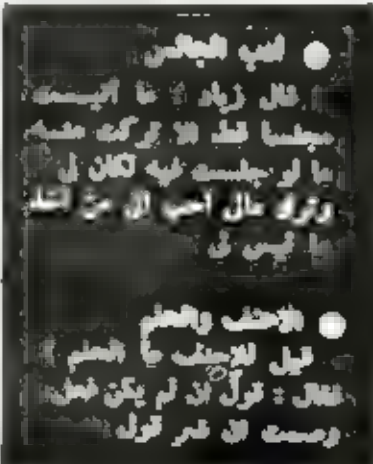 أدب المجلس
قال زياد : ما أتيت
مجلسا قط الا تركت منه
ما لو جلست فيه لكان لي
وترك مالي أحب الي من أخذ
ما ليس لي
الأحنف والحلم
قيل للأحنف ما الحلم
فقال : قول ان لم يكن فعل
وصمت ان ضر قول